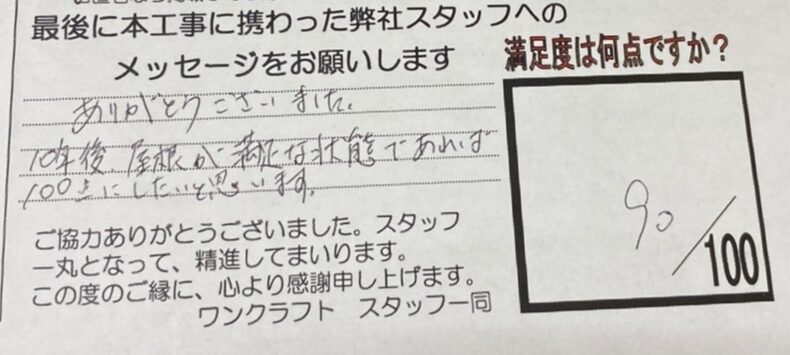 最後に本工事に携わった弊社スタッフへの
メッセージをお願いします
ありがとうございました。
10年後、屋根が満足な状態であれば
100点にしたいと思います。
ご協力ありがとうございました。スタッフ
一丸となって、精進してまいります。
この度のご縁に、心より感謝申し上げます。
ワンクラフト　スタッフ一同
満足度は何点ですか？
90/100